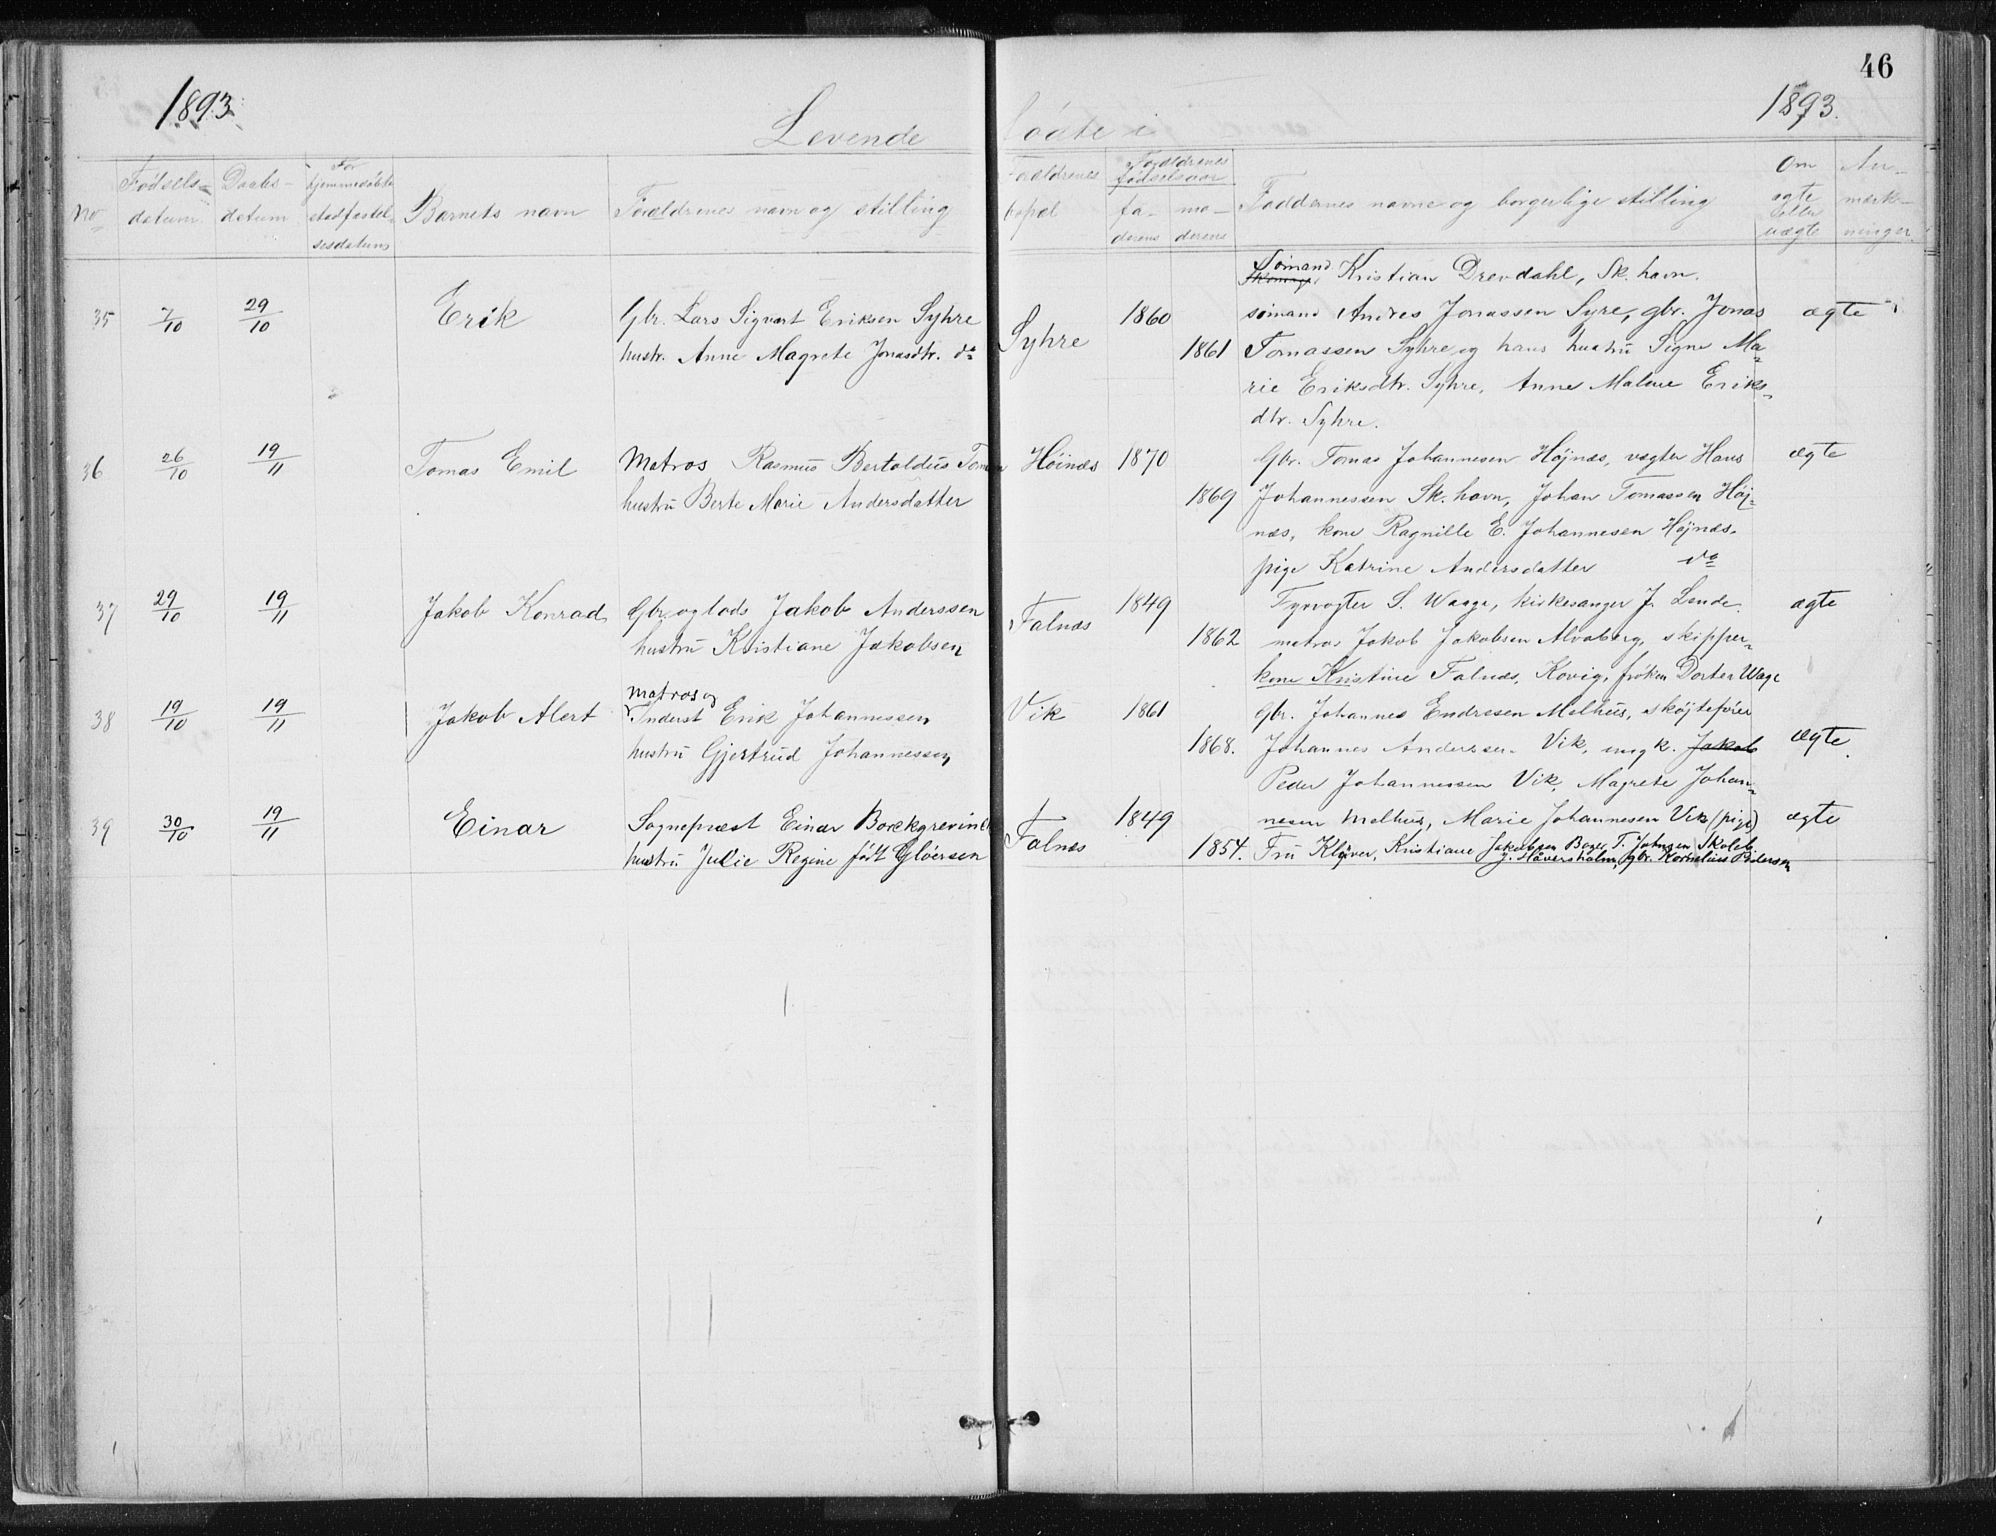 46
1893. 1893.
Levende fødte i
No
Fødsels-
datum.
Daabs-
datum
For
hjemmedøbte
stadfæstel-
sesdatum
Barnets navn
Forældrenes navn og stilling
Forældrenes
bopæl
Forældrenes
fødselsaar
fa-
derens
mo-
derens
Faddernes navne og borgerlige stilling
Om
ægte
eller
uægte
An-
mærk-
ninger.
35 7/10 29/10 Erik
Gbr. Lars Sigvart Eriksen Syhre
hustr. Anne Magrete Jonasdtr. do
Syhre 1860
1861
Sömand Kristian Drevdahl, Sk. havn.
sömand Andres Jonassen Syre, gbr. Jonas
Tomassen Syhre og hans hustru Signe Ma-
rie Eriksdtr. Syhre, Anne Malene Eriks-
dtr. Syhre.
ægte
36 26/10 19/11 Tomas Emil
Matros Rasmus Bertoldus
hustru Berte Marie Andersdatter
Höinæs 1870
1869
Gbr. Tomas Johannesen Höjnæs, vægter Hans
Johannessen Sk. havn, Johan Tomassen Höj-
næs, kone Ragnille E. Johannesen Höjnæs.
pige Katrine Andersdatter do
ægte
37 29/10 19/11 Jakob Konrad
Gbr. og lods Jakob Anderssen
hustru Kristiane Jakobsen
Falnæs 1849
1862
Fyrvogter S. Waage, kirkesanger J. Lende.
matros Jakob Jakobsen Alvaberg, skipper-
kone Kristine Falnæs, Kovig, fröken Dortea Wage
ægte
38 19/10 19/11 Jakob Alert
Matros og
Inderst Erik Johannessen
hustru Gjertrud Johannessen
Vik 1861
1868.
Gbr. Johannes Endresen Melhus, sköjtefører
Johannes Andersen Vik, ungk. Jakob
Peder Johannessen Vik, Magrete Johan-
nesen Melhus, Marie Johannesen Vik (pige)
ægte.
39 30/10 19/11 Einar
Sognepræst Einar Borchgrevinck
hustru Julie Regine født Glöersen
Falnæs 1849
1854.
Fru Klöver, Kristiane Jakobsen Boger, T. Johnsen, Skoleb.
J. Håversholm, gbr. Kornelius Pedersen
ægte